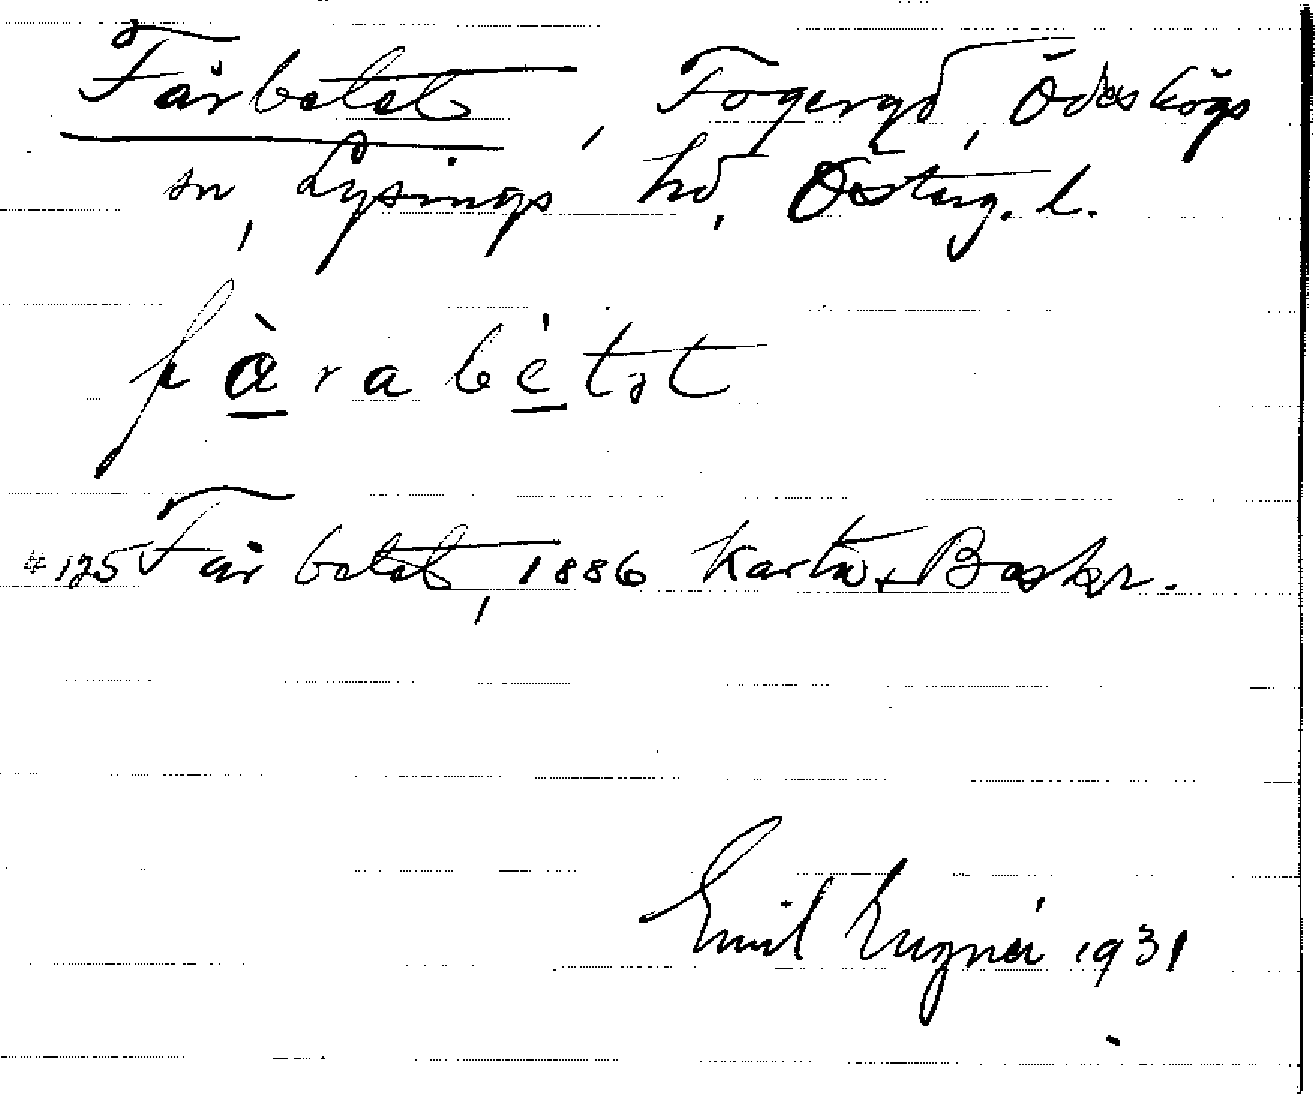 Fårbetet, Fogeryd, Ödeshögs
sn, Lysings hd, Österg. l.
fàrabétət
#125 Fårbetet, 1886 Karta + Beskr.
Emil 1931